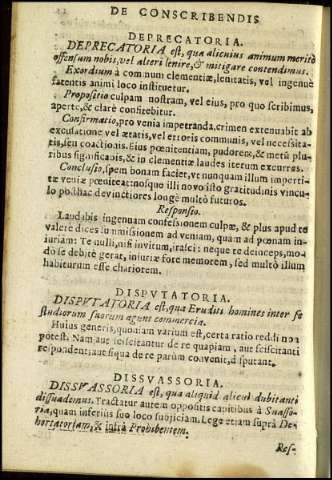 DE CONSCRIBENDIS
DEPRECATORIA.
DEPRECATORIA est, qua alicuius animum meritò
offensum nobis, vel alteri lenire, & mitigare contendimus.
Exordium à communi clementiæ, lenitatis, vel ingenuè
fatentis animi loco instituetur.
Propositio culpam nostram, vel eius, pro quo scribimus,
apertè, & clarè confitebitur.
Confirmatio, pro venia impetranda, crimen extenuabit ab
excusatione vel ætatis, vel erroris communis, vel necessita-
tis, seu coactionis. Eius pœnitentiam, pudorem, & metũ plu-
ribus significabis, & in clementiæ laudes iterum excurres.
Conclusio, spem bonam faciet, vt nunquam illum imperti-
tæ veniæ pœniteat: nosque illi nouo isto gratitudinis vincu-
lo posthac deuinctiores longè multò futuros.
Responsio.
Laudabis ingenuam confessionem culpæ, & plus apud te
valere dices summissionem ad veniam, quam ad pœnam in-
iuriam: Te nulli, nisi inuitum, irasci: neque te deinceps, mo-
dò se debitè gerat, iniuriæ fore memorem, sed multò illum
habiturum esse chariorem.
DISPVTATORIA.
DISPVTATORIA est, qua Eruditi homines inter se
studiorum suorum agunt commercia.
Huius generis, quoniam varium est, certa ratio reddi non
potest. Nam aut sciscitantur de re quapiam, aut sciscitanti
respondent: aut siqua de re parùm conuenit, disputant.
DISSVASSORIA.
DISSVASSORIA est, qua aliquid alicui dubitanti
dissuademus. Tractatur autem oppositis capitibus à Suasso-
ria, quam inferius suo loco subijciam. Lege etiam suprà De-
hortatoriam, & infrà Prohibentem.
Res-